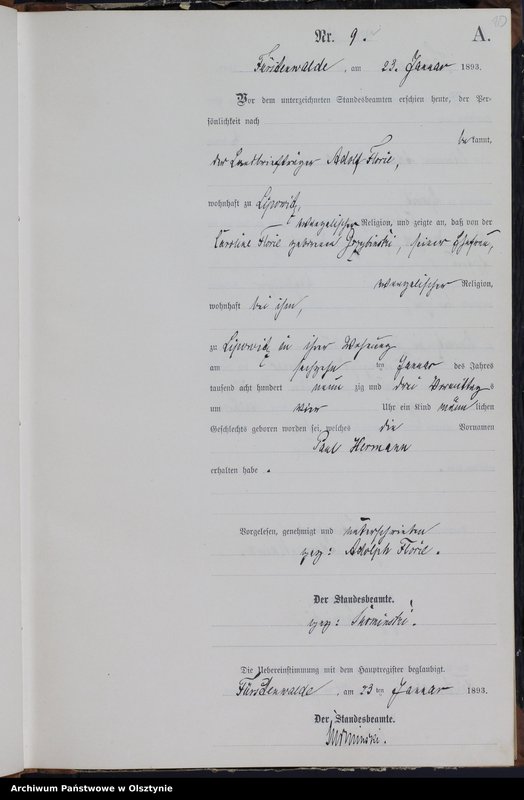 Nr. 9. A.
Fürstenwalde, am 23. Januar 1893.
Vor dem unterzeichneten Standesbeamten erschien heute, der Per-
sönlichkeit nach
be kannt,
der Landbriefträger Adolf Florie,
wohnhaft zu Lipowitz,
evangelischer Religion, und zeigte an, daß von der
Caroline Florie geborenen Grzybinski, seiner Ehefrau,
evangelischer Religion,
wohnhaft bei ihm,
zu Lipowitz in ihrer Wohnung
am sechzehn ten Januar des Jahres
tausend acht hundert neun zig und drei Vormittags
um vier Uhr ein Kind männ lichen
Geschlechts geboren worden sei, welches die Vornamen
Paul Hermann
erhalten habe.
Vorgelesen, genehmigt und unterschrieben
gez: Adolph Florie.
Der Standesbeamte.
gez:
Die Uebereinstimmung mit dem Hauptregister beglaubigt.
Fürstenwalde, am 23 ten Januar 1893.
Der Standesbeamte.
Archiwum Państwowe w Olsztynie